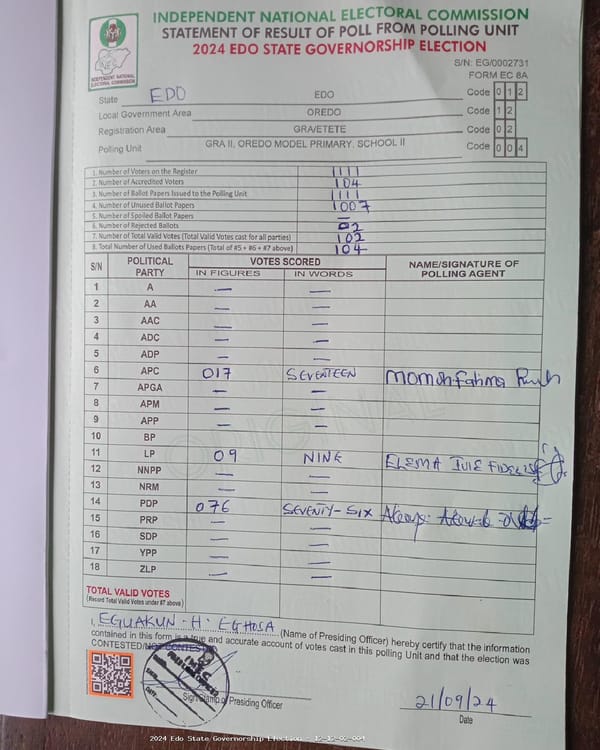 INDEPENDENT NATIONAL ELECTORAL COMMISSION
STATEMENT OF RESULT OF POLL FROM POLLING UNIT
2024 EDO STATE GOVERNORSHIP ELECTION
INDEPENDENT NATIONAL ELECTORAL COMMISSION
S/N: EG/0002731
FORM EC 8A
State EDO EDO Code 0 1 2
Local Government Area OREDO Code 1 2
Registration Area GRA/ETETE Code 0 2
Polling Unit GRA II, OREDO MODEL PRIMARY, SCHOOL II Code 0 0 4
1. Number of Voters on the Register 1111
2. Number of Accredited Voters 104
3. Number of Ballot Papers Issued to the Polling Unit 1111
4. Number of Unused Ballot Papers 1007
5. Number of Spoiled Ballot Papers —
6. Number of Rejected Ballots 02
7. Number of Total Valid Votes (Total Valid Votes cast for all parties) 102
8. Total Number of Used Ballots Papers (Total of #5 + #6 + #7 above) 104
S/N POLITICAL PARTY VOTES SCORED NAME/SIGNATURE OF POLLING AGENT
IN FIGURES IN WORDS
1 A — —
2 AA — —
3 AAC — —
4 ADC — —
5 ADP — —
6 APC 017 SEVENTEEN Momoh Fatima
7 APGA — —
8 APM — —
9 APP — —
10 BP
11 LP 09 NINE ELEMA FIDELIS
12 NNPP — —
13 NRM — —
14 PDP 076 SEVENTY-SIX
15 PRP — —
16 SDP — —
17 YPP — —
18 ZLP — —
TOTAL VALID VOTES
(Record Total Valid Votes under #7 above)
I, EGUAKUN. H. EGHOSA (Name of Presiding Officer) hereby certify that the information
contained in this form is a true and accurate account of votes cast in this polling Unit and that the election was
CONTESTED/NOT CONTESTED
INEC
PRESIDING OFFICER
DATE
Sign/Stamp of Presiding Officer
21/09/24
Date
2024 Edo State Governorship Election - 12-12-02-004